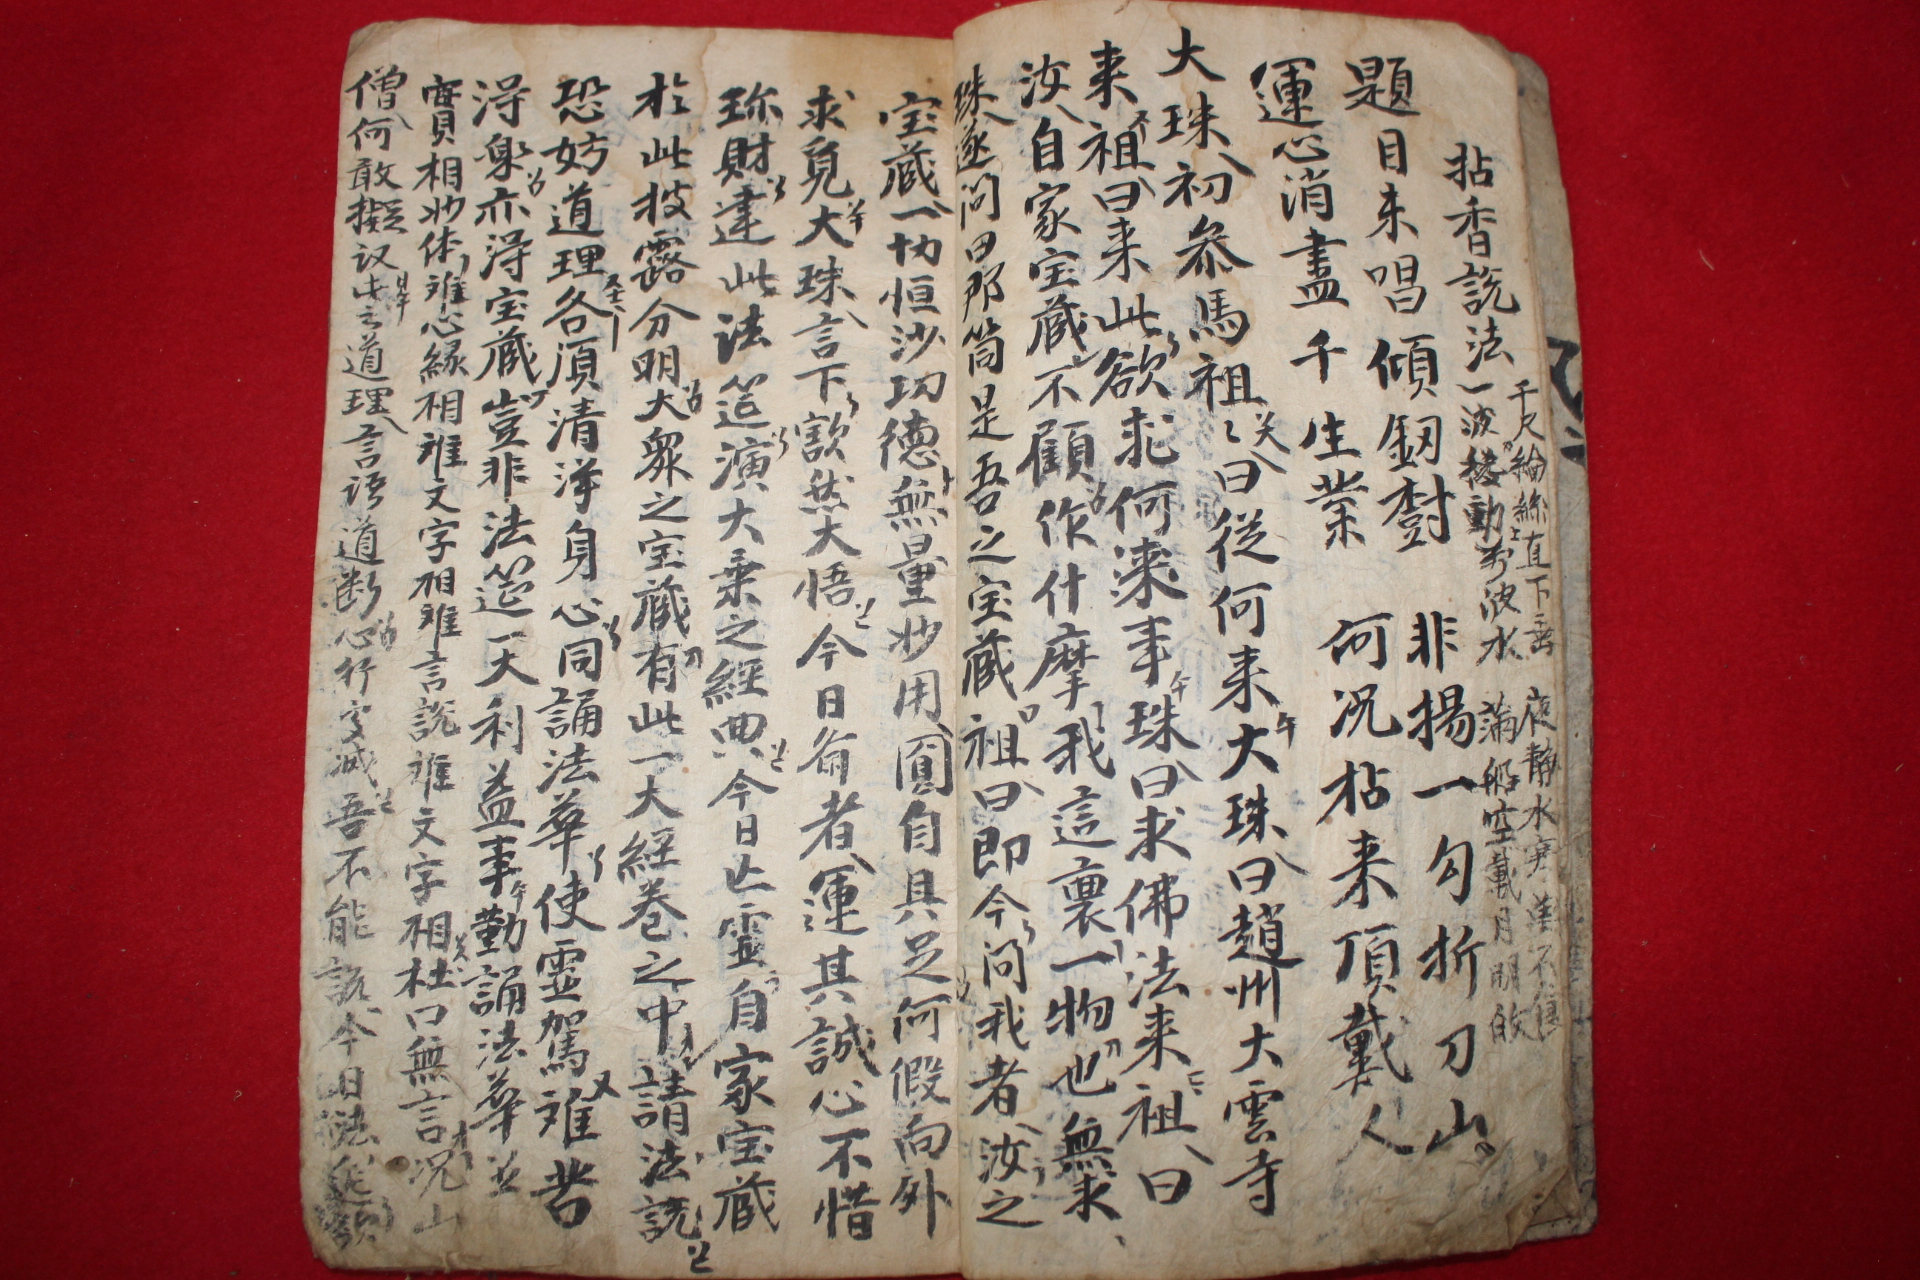 拈香説法
千尺綸絲直下垂 夜靜水寒
一波動万波水 滿船空載月明
題目未唱傾劒樹 非揚一句折刀山
運心消盡千生業 何况拈来頂戴人
大珠初叅馬祖祖曰從何来大珠曰趙州大雲寺
来祖曰来此欲求何事珠曰求佛法来祖曰
汝自家宝蔵不顧作什摩我這裏一物也無求
珠遂問曰那箇是吾之宝蔵祖曰即今問我者汝之
宝蔵一切恒沙功德無量妙用圓自具足何假向外
求覓大珠言下豁然大悟今日斋者運其誠心不惜
珎財建此法筵演大乗之經典今日亡靈自家宝蔵
扵此披露分明大衆之宝蔵有此一大經巻之中請法説
恐妨道理各湏清淨身心同誦法華使靈駕離苦
淂樂亦淂宝蔵豈非法筵一大利益事勤誦法華並
實相妙体離心縁相離文字相離言説離文字相杜口無言况山
僧何敢擬议此之道理言語道断心行処滅吾不能説今日法筵